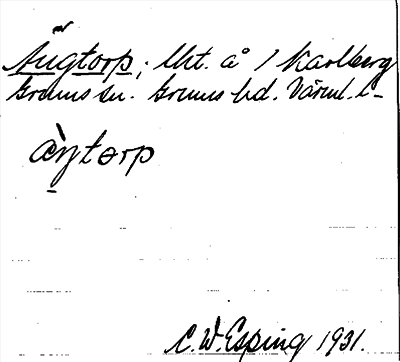 Ängtorp; lht. å 1 Karlberg
Grums sn. Grums hd. Värml. l-
æ̀ŋtorp
C. W. Esping 1931.